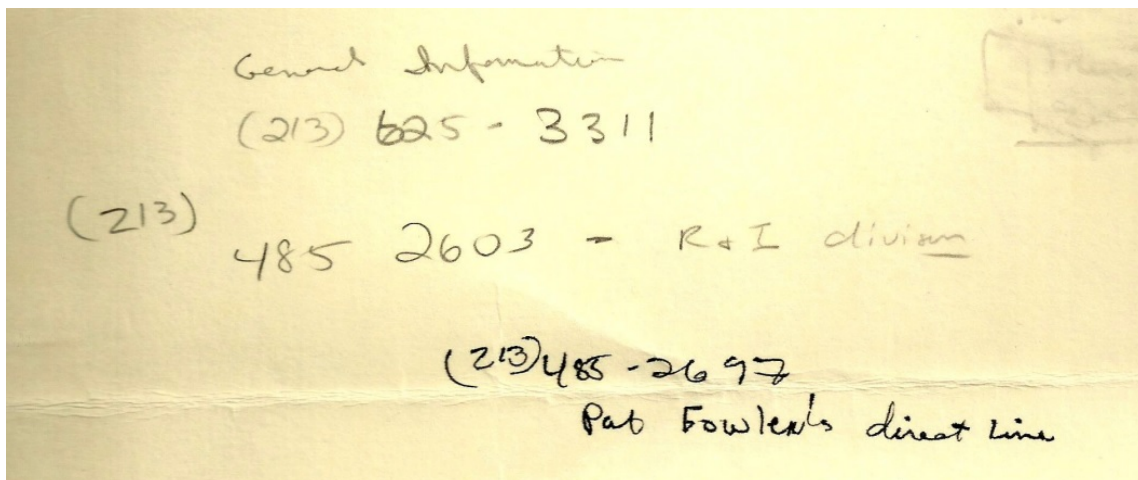 General Information
(213) 625 - 3311
(213)
485 2603 - R & I division
(213) 485 - 2697
Pat Fowler's direct line